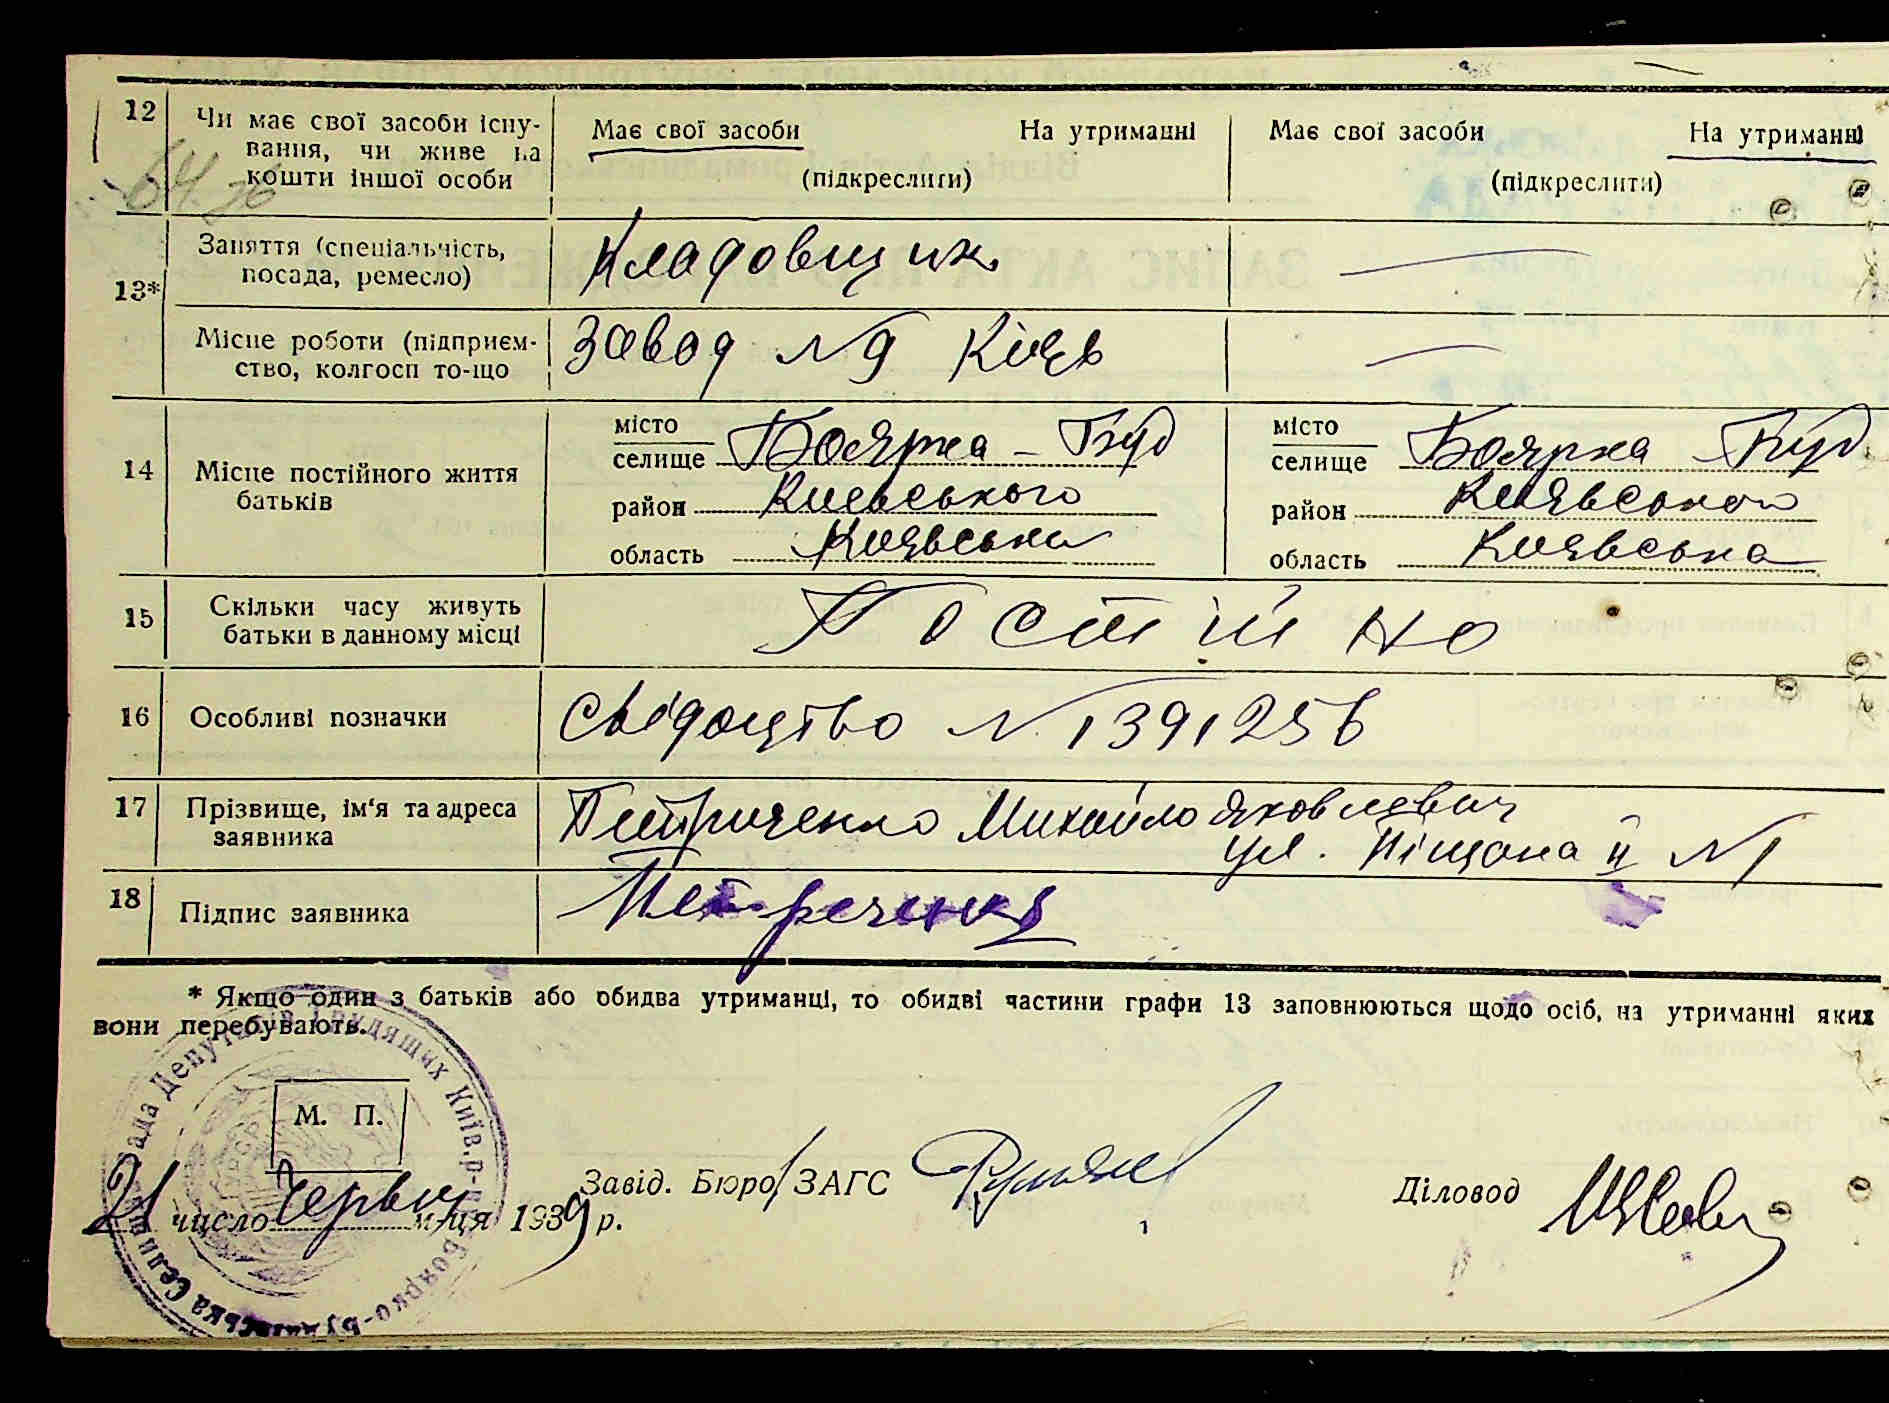 12 Чи має свої засоби існу-
вання, чи живе на
кошти іншої особи
Має свої засоби На утриманні
(підкреслити)
Має свої засоби На утриманні
(підкреслити)
13* Заняття (спеціальність,
посада, ремесло)
Кладовщик
Місце роботи (підприєм-
ство, колгосп то-що
Завод № 9 Київ
14 Місце постійного життя
батьків
місто
селище Боярка - Буд
район Київського
область Київська
місто
селище Боярка - Буд
район Київського
область Київська
15 Скільки часу живуть
батьки в данному місці
Постійно
16 Особливі позначки
Свідоцтво № 1391256
17 Прізвище, ім'я та адреса
заявника
Петриченко Михайло Яковлевич
ул. Піщана ІІ № 1
18 Підпис заявника
Петреченко
* Якщо один з батьків або обидва утриманці, то обидві частини графи 13 заповнюються щодо осіб, на утриманні яких
вони перебувають.
Рада Депутатів Трудящих Київ. р-н
Боярко-Будаївська Селищна
УРСР
М. П.
21 число Червня м-ця 1939 р.
Завід. Бюро ЗАГС
Діловод